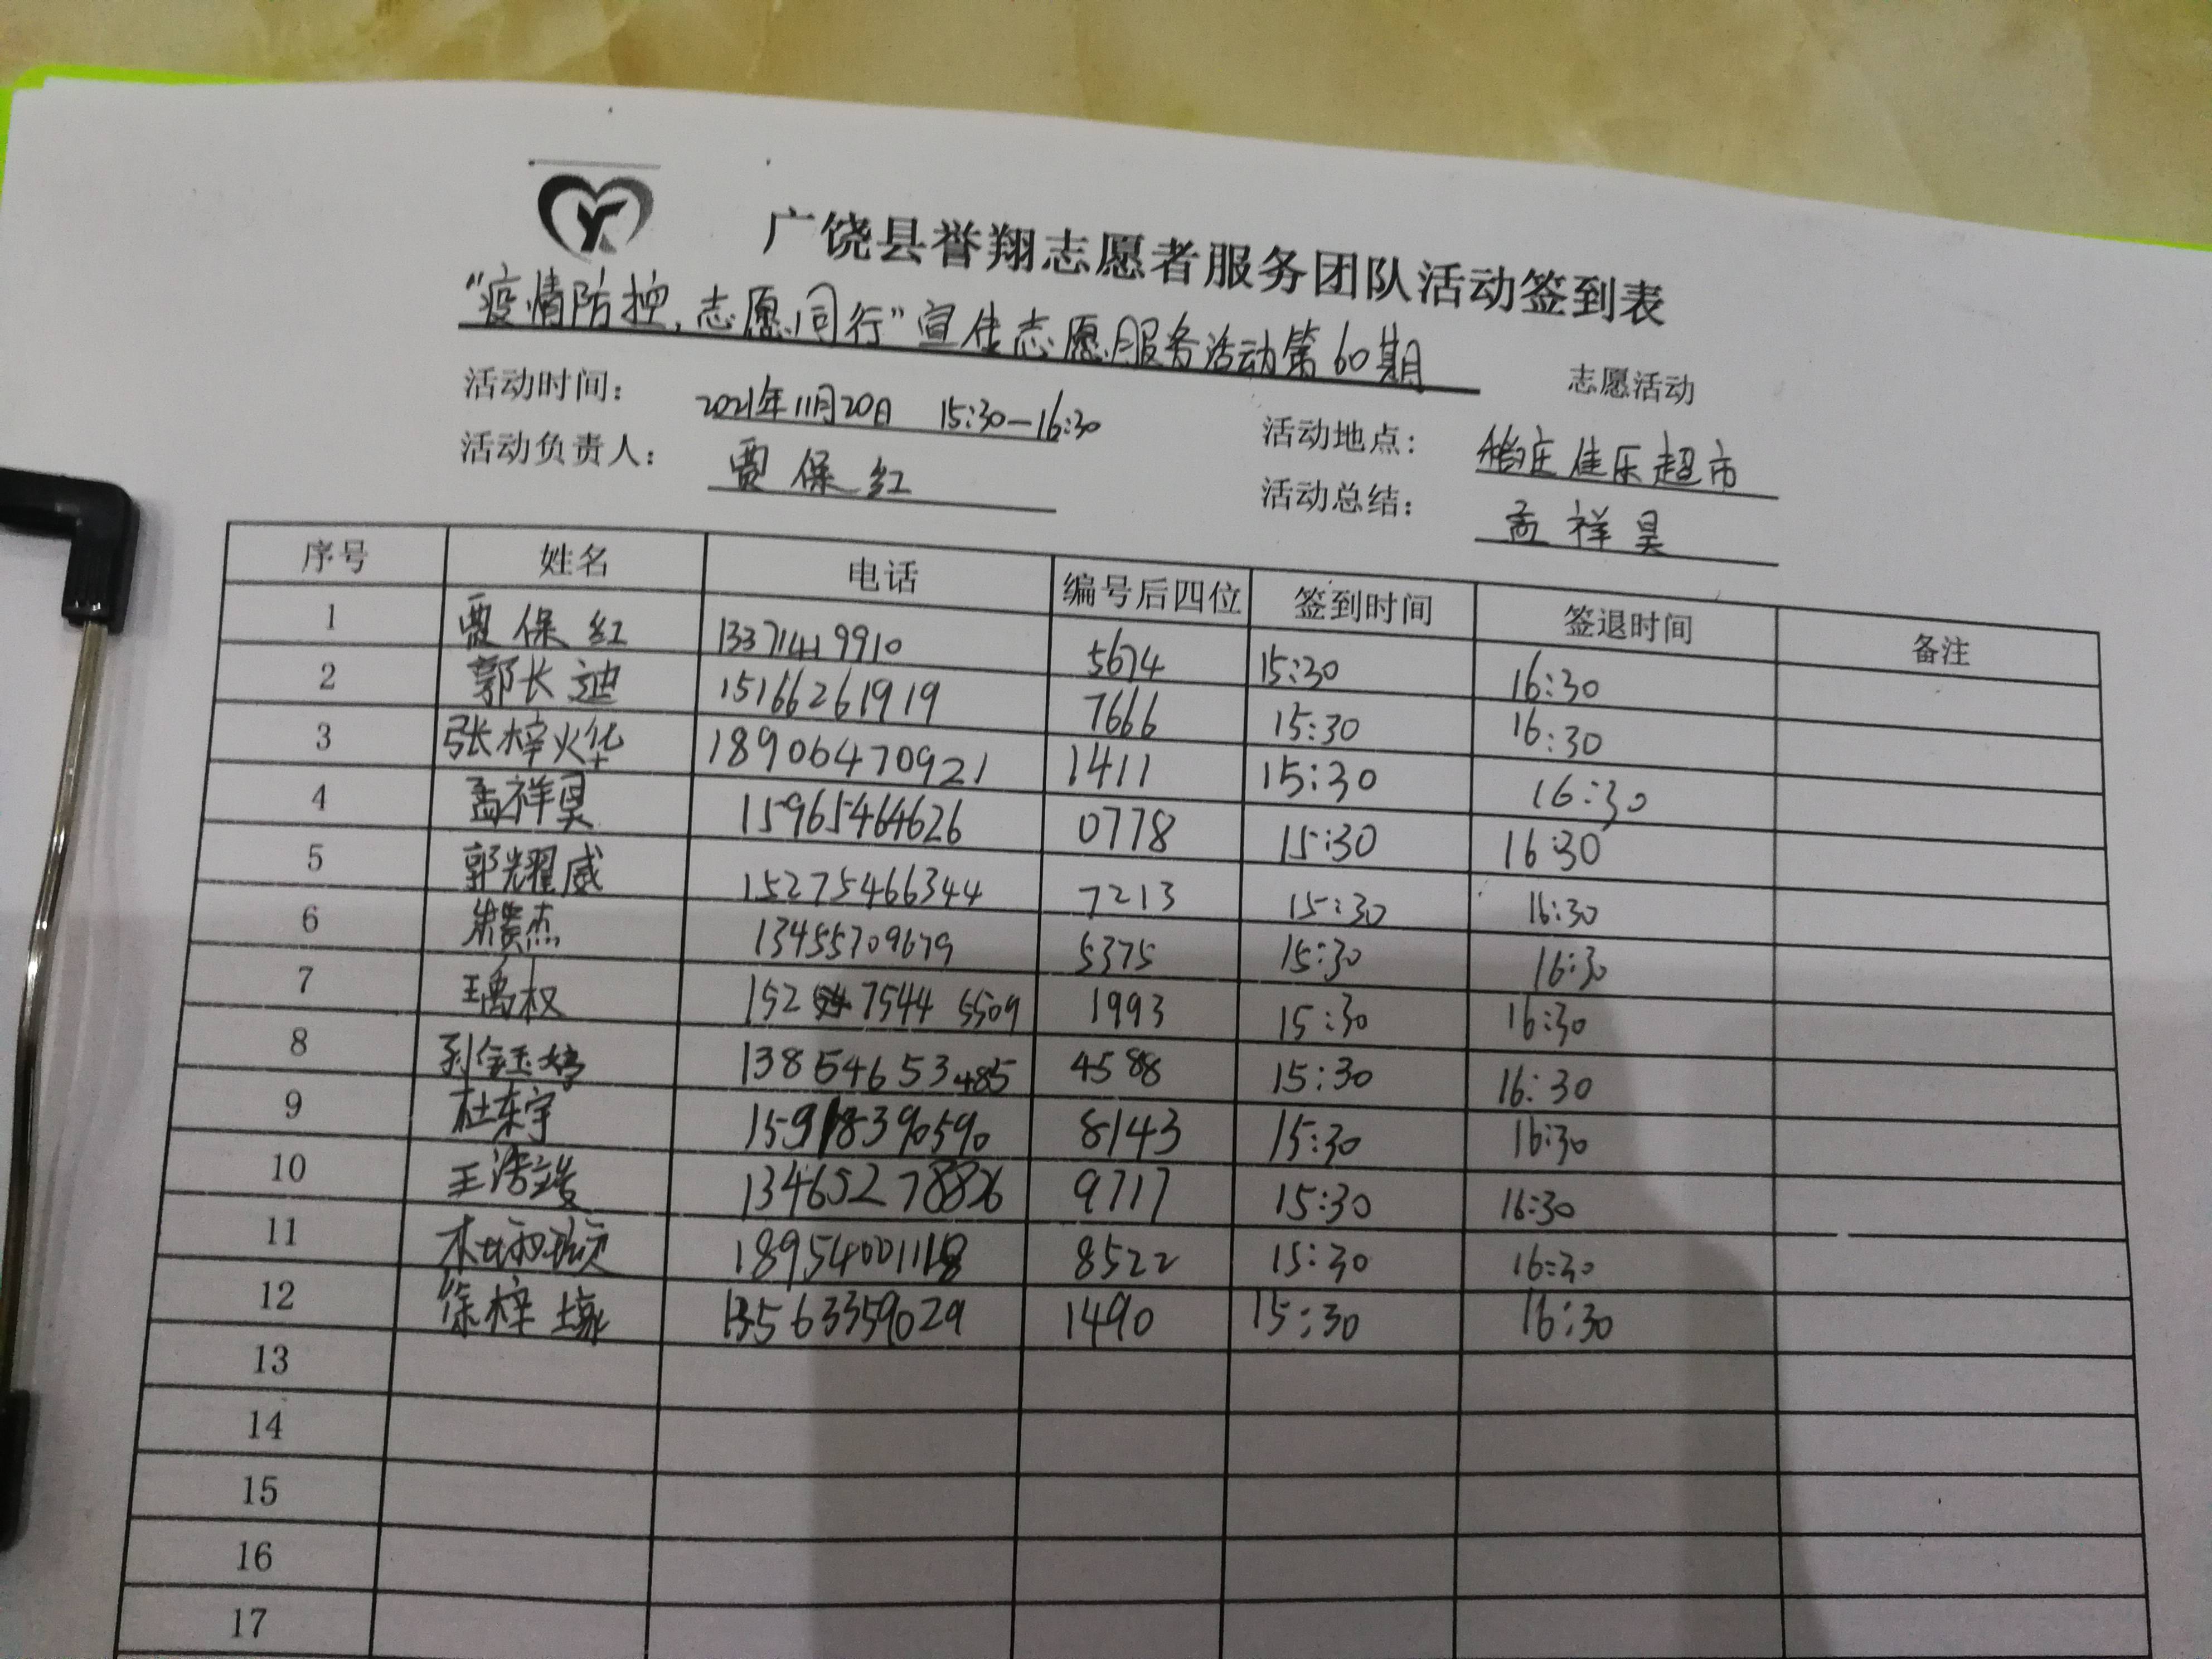 广饶县誉翔志愿者服务团队活动签到表
“疫情防控,志愿同行”宣传志愿服务活动第60期 志愿活动
活动时间: 2021年11月20日 15:30—16:30 活动地点: 佳乐超市
活动负责人: 贾保红 活动总结: 孟祥昊
序号 姓名 电话 编号后四位 签到时间 签退时间 备注
1 贾保红 13371419910 5674 15:30 16:30
2 郭长迪 15166261919 7666 15:30 16:30
3 张梓烨 18906470921 1411 15:30 16:30
4 孟祥昊 15965464626 0778 15:30 16:30
5 郭耀威 15275466344 7213 15:30 16:30
6 13455709679 5375 15:30 16:30
7 王禹权 152 7544 5509 1993 15:30 16:30
8 13854653485 4588 15:30 16:30
9 杜东宇 15918390590 8143 15:30 16:30
10 9717 15:30 16:30
11 18954001118 8522 15:30 16:30
12 徐梓 13563359029 1490 15:30 16:30
13
14
15
16
17